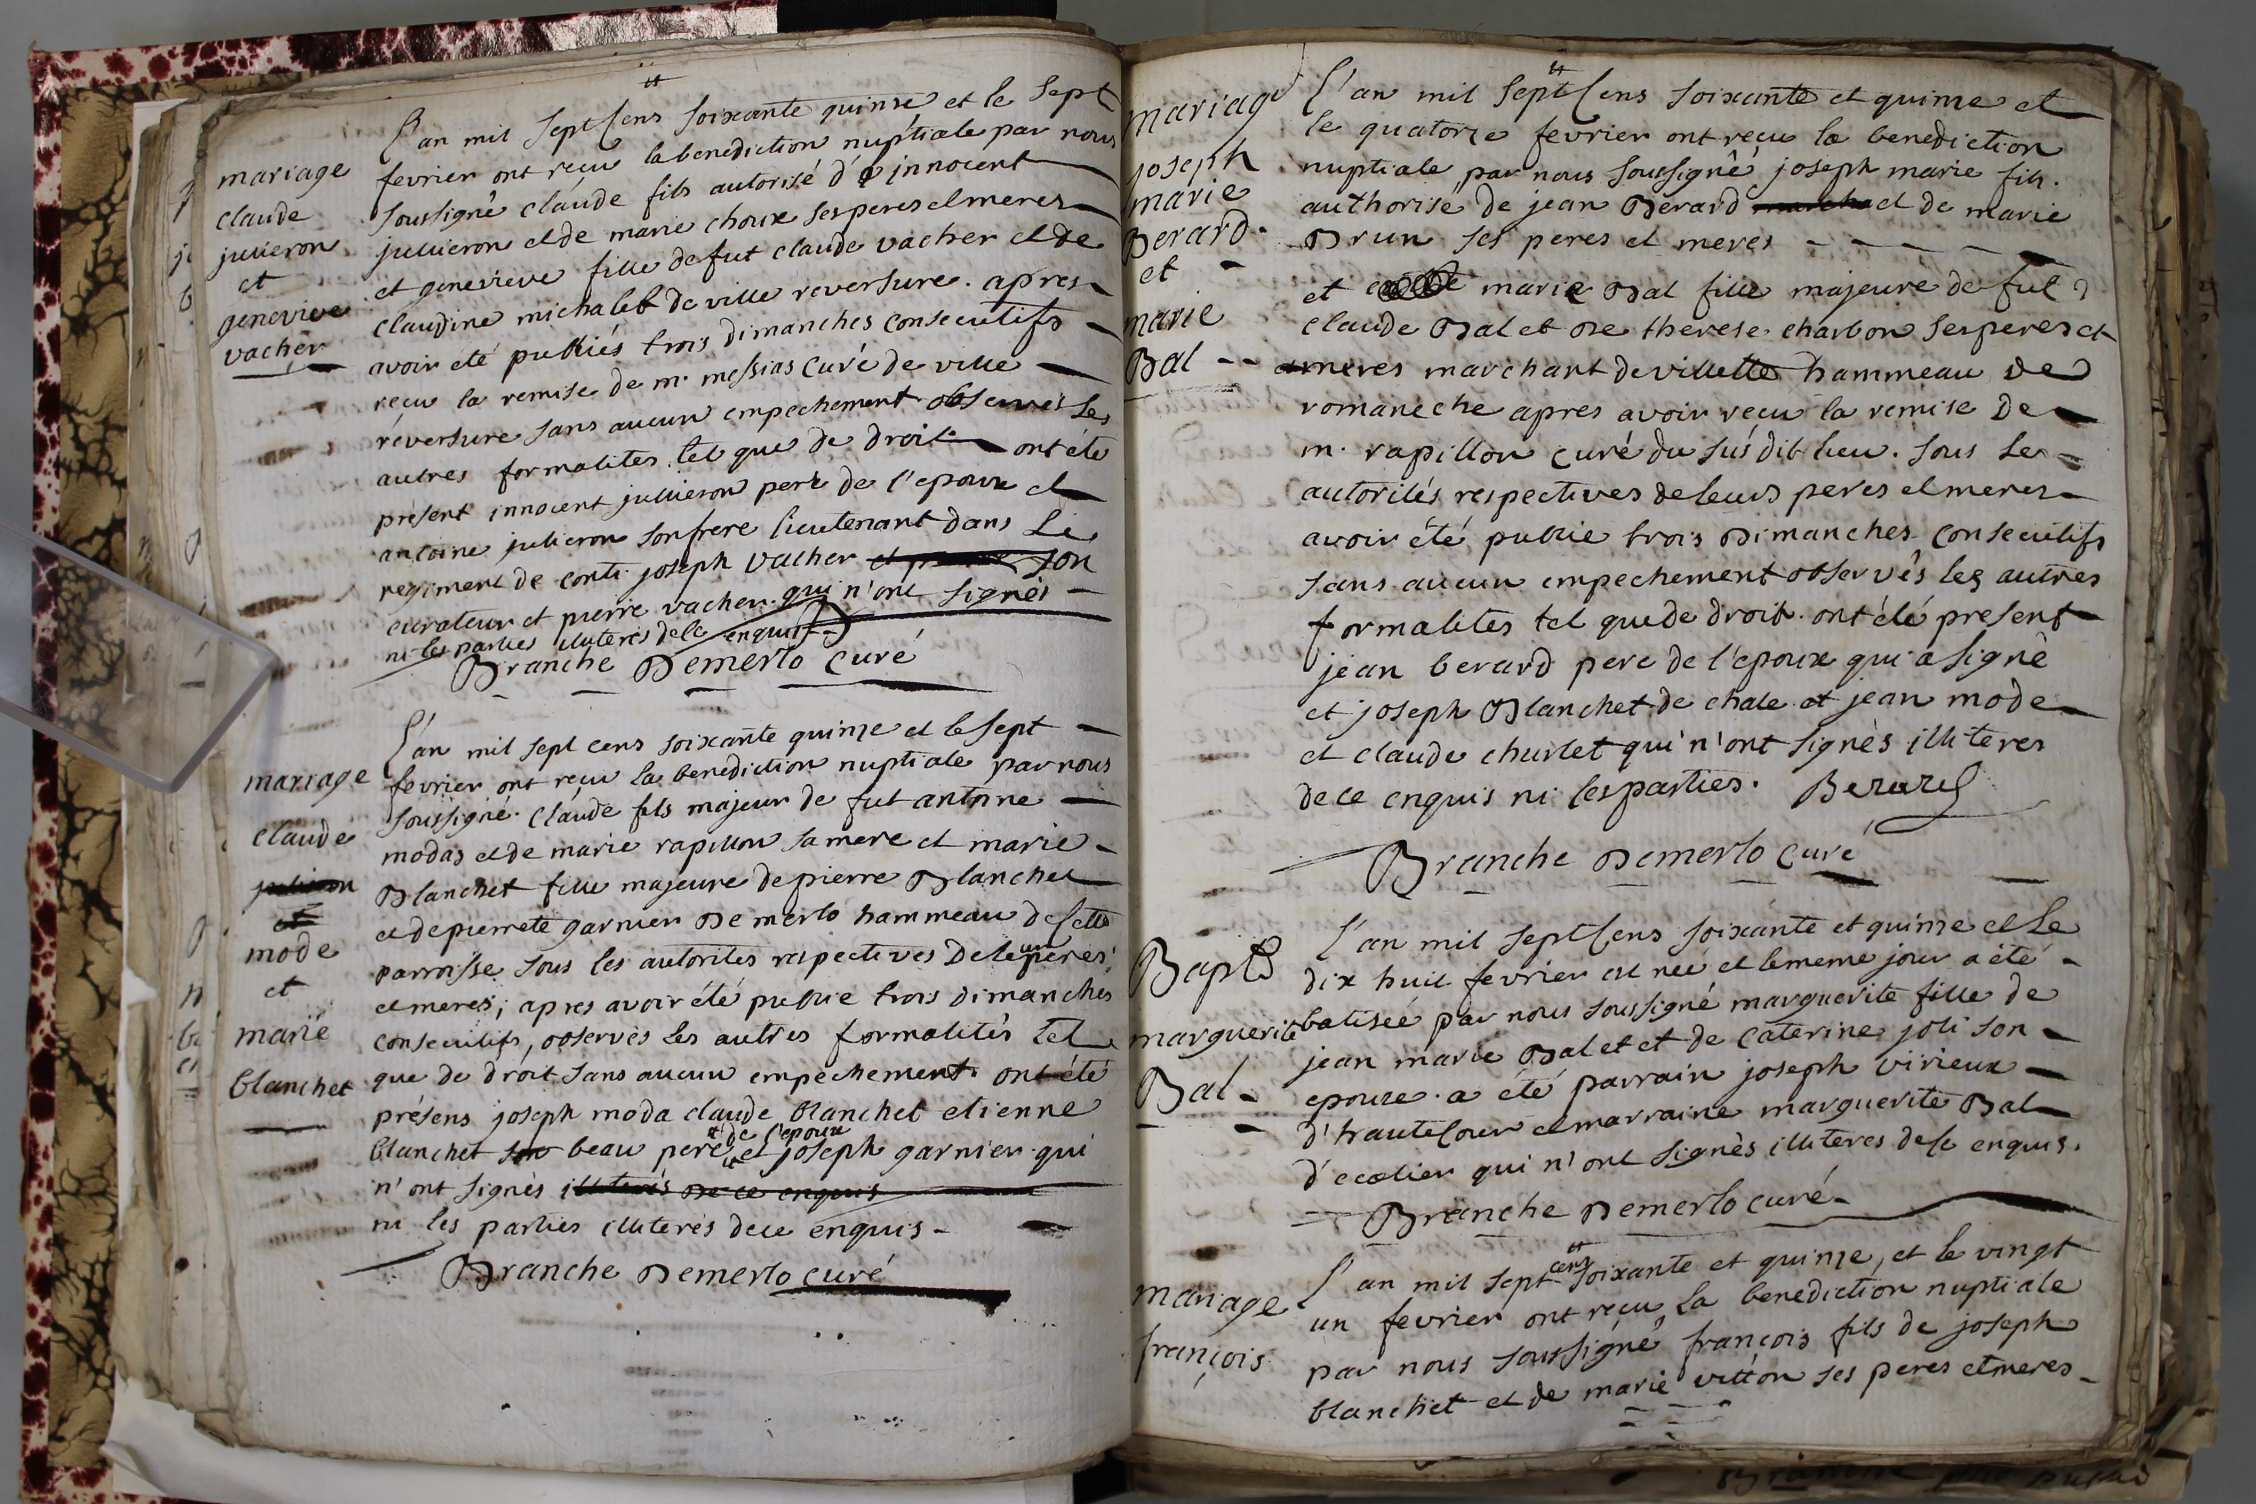 mariage
claude
jullieron
et
genevieve
vacher
L'an mil sept cens soixante quinse et le sept
fevrier ont reçu la benediction nuptiale par nous
soussigné claude fils autorisé d'innocent
jullieron et de marie choux ses peres et meres
et genevieve fille de fut claude vacher et de
claudine michalet de ville reversure. apres
avoir eté publiés trois dimanches consecutifs
reçu la remise de m. messias curé de ville
réversure sans aucun empechement observés les
autres formalites tel que de droit ont éte
present innocent jullieron pere de l'epoux et
antoine julieron son frere lieutenant dans le
regiment de conti joseph vacher et son
curateur et pierre vacher. qui n'ont signés
ni les parties illiteres de ce enquis
Branche Demerlo curé
mariage
claude
julieron
et
mode
et
marie
blanchet
L'an mil sept cens soixante quinze et le sept
fevrier ont reçu la benediction nuptiale par nous
soussigné. claude fils majeur de fut antoine
modas et de marie rapillon sa mere et marie
Blanchet fille majeure de pierre Blanchet
et de pierrete garnier de merlo hammeau de cette
parroisse sous les autorites respectives de leur peres
et meres; apres avoir été publie trois dimanches
consecutifs, observés les autres formalités tel
que de droit sans aucun empechement ont été
présens joseph moda claude blanchet etienne
blanchet son beau pere et joseph garnier qui
de l'epoux
n'ont signés illiterés de ce enquis
ni les parties illiterés de ce enquis
Branche Demerlo curé
mariage
joseph
marie
Berard
et
marie
Bal
L'an mil sept cens soixante et quinze et
le quatorze fevrier ont reçu la benediction
nuptiale par nous soussigné joseph marie fils
authorisé de jean Berard et de marie
Brun ses peres et meres
et marie Bal fille majeure de fut
claude Bal et de therese charbon ses peres et
meres marchant de villette hammeau de
romaneche apres avoir reçu la remise de
m. rapillon curé du susdit lieu. sous les
autorités respectives de leurs peres et meres
avoir été publie trois Dimanches consecutifs
sans aucun empechement observés les autres
formalites tel que de droit. ont été present
jean berard pere de l'epoux qui a signé
et joseph Blanchet de chale et jean mode
et claude churlet qui n'ont signés illiteres
de ce enquis ni les parties. Berard
Branche Demerlo curé
Bapt
marguerite
Bal
L'an mil sept cens soixante et quinze et le
dix huit fevrier est neé et le meme jour a été
batiseé par nous soussigné marguerite fille de
jean marie Bal et et de caterine joli son
epouxe. a été parrain joseph virieux
d'hautecour et marraine marguerite Bal
d'ecolier qui n'ont signés illiteres de ce enquis.
Branche Demerlo curé
mariage
françois
L'an mil sept cens soixante et quinze, et le vingt
un fevrier ont reçu la benediction nuptiale
par nous soussigné françois fils de joseph
blanchet et de marie vitton ses peres et meres